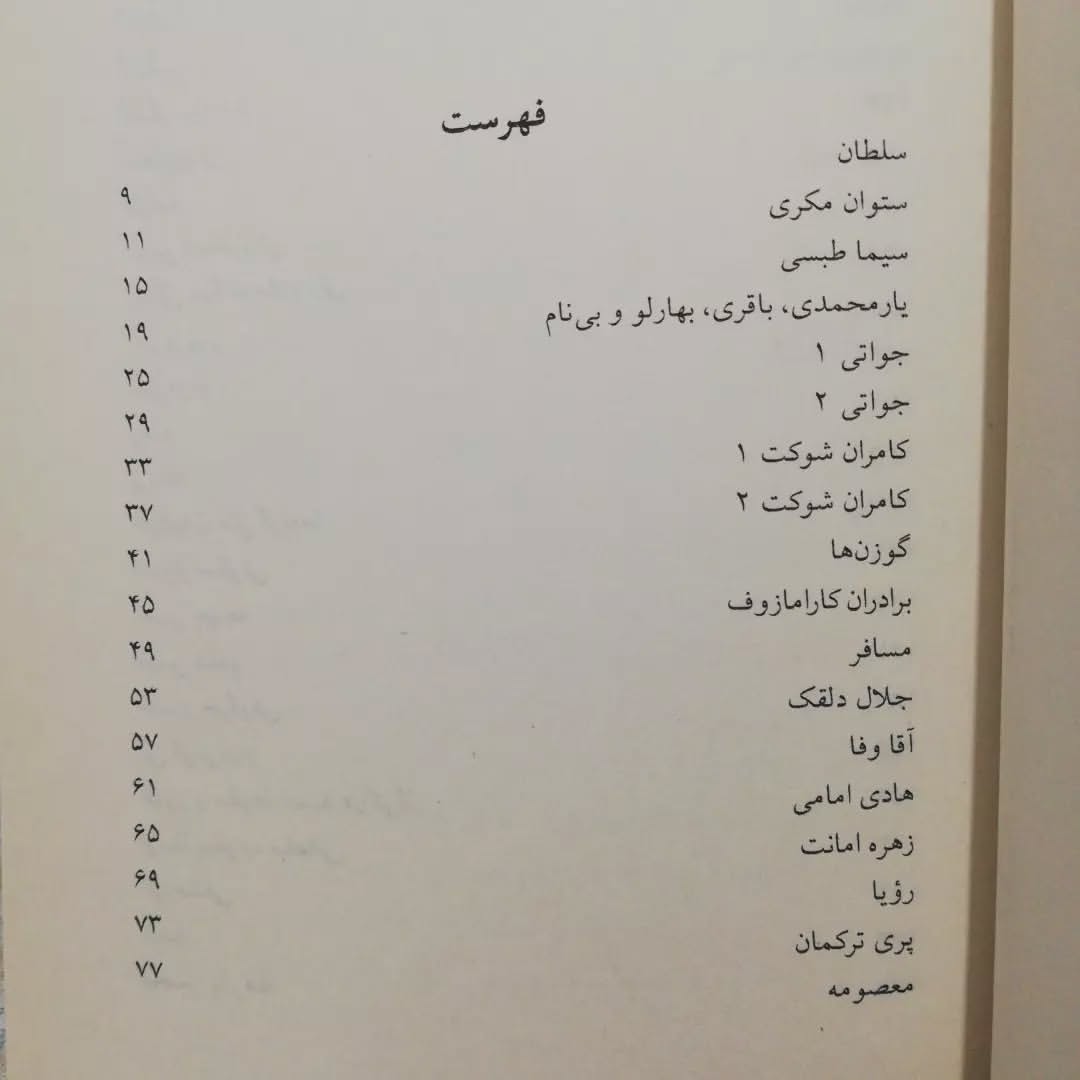 فهرست
سلطان ۹
ستوان مکری ۱۱
سیما طبسی ۱۵
یارمحمدی، باقری، بهارلو و بی‌نام ۱۹
جواتی ۱ ۲۵
جواتی ۲ ۲۹
کامران شوکت ۱ ۳۳
کامران شوکت ۲ ۳۷
گوزن‌ها ۴۱
برادران کارامازوف ۴۵
مسافر ۴۹
جلال دلقک ۵۳
آقا وفا ۵۷
هادی امامی ۶۱
زهره امانت ۶۵
رؤیا ۶۹
پری ترکمان ۷۳
معصومه ۷۷